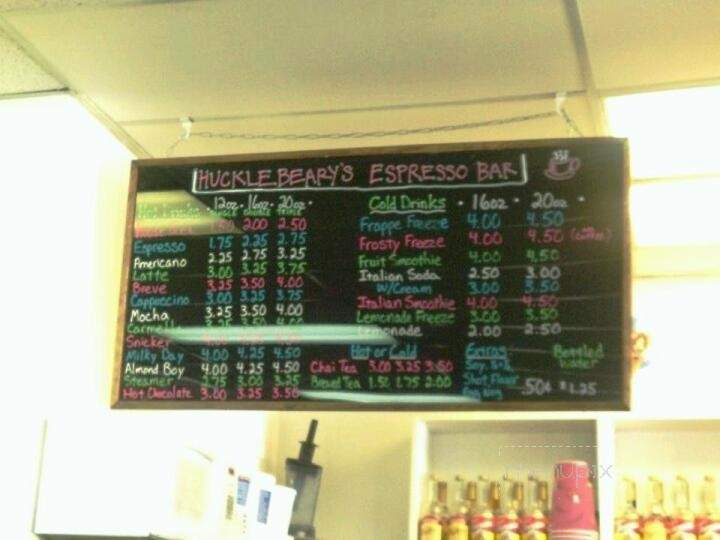 HUCKLE.BEARY'S ESPRESSO BAR
12oz. 16oz. 20oz.
SINGLE DOUBLE TRIPLE
2.00 2.50
Espresso 1.75 2.25 2.75
Americano 2.25 2.75 3.25
Latte 3.00 3.25 3.75
Breve 3.25 3.50 4.00
Cappuccino 3.00 3.25 3.75
Mocha 3.25 3.50 4.00
3.25 3.50 4.00
Snicker
Milky Day 4.00 4.25 4.50
Almond Boy 4.00 4.25 4.50
Steamer 2.75 3.00 3.25
Hot Chocolate 3.00 3.25 3.50
Cold Drinks 16oz 20oz
Frappe Freeze 4.00 4.50
Frosty Freeze 4.00 4.50
Fruit Smoothie 4.00 4.50
Italian Soda 2.50 3.00
W/Cream 3.00 3.50
Italian Smoothie 4.00 4.50
Lemonade Freeze 3.00 3.50
Lemonade 2.00 2.50
Hot or Cold
Chai Tea 3.00 3.25 3.50
Brewed Tea 1.50 1.75 2.00
Extras
Soy
Shot Flavor
.50¢
Bottled
Water
$1.25